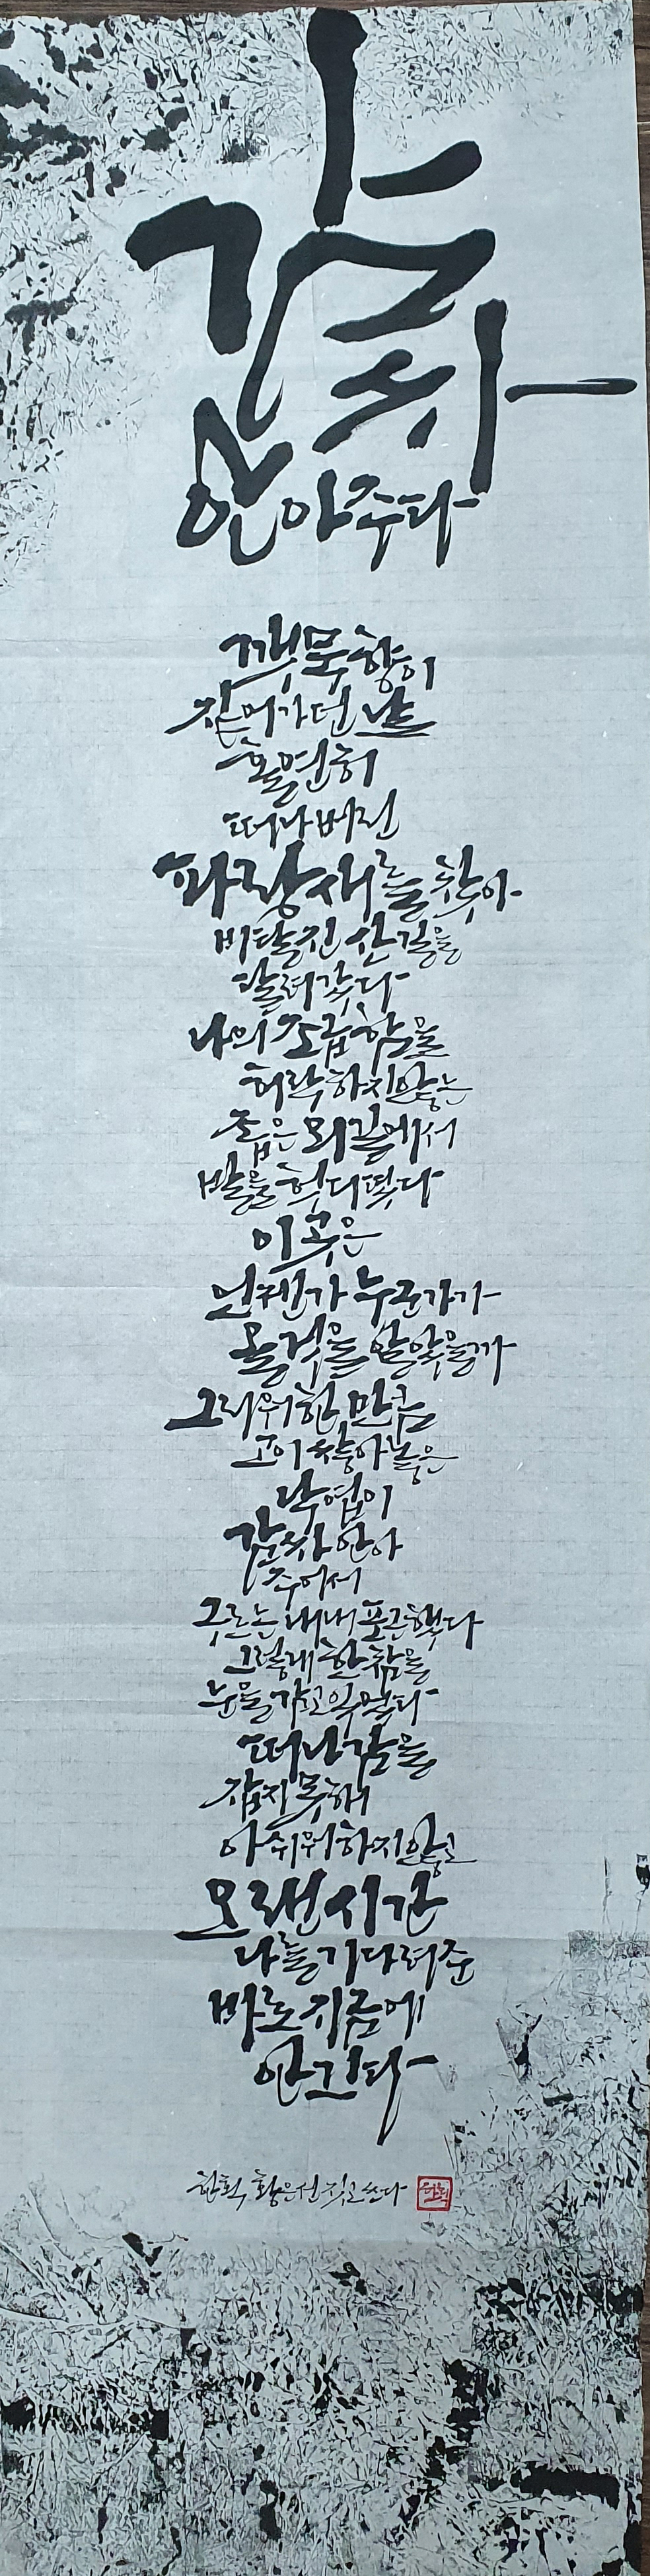 감싸
안아주다
깻묵향이
짙어가던 날
홀연히
떠나버린
파랑새를 찾아
비탈진 산길을
달려갔다
나의 조급함을
허락하지않는
좁은 외길에서
발을 헛디뎠다
이곳은
언젠가 누군가가
올것을 알았을까
그리워한 만큼
고이 쌓아놓은
낙엽이
감싸안아
주어서
구르는내내 포근했다
그렇게 한참을
눈을 감고있었다
떠나감을
잡지못해
아쉬워하지않고
오랜시간
나를기다려준
바로지금에
안긴다
한획 황은선 짓고쓰다
한획